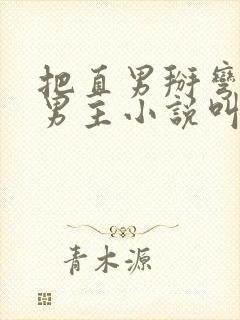 把直男掰弯
男主小说叫
青木源